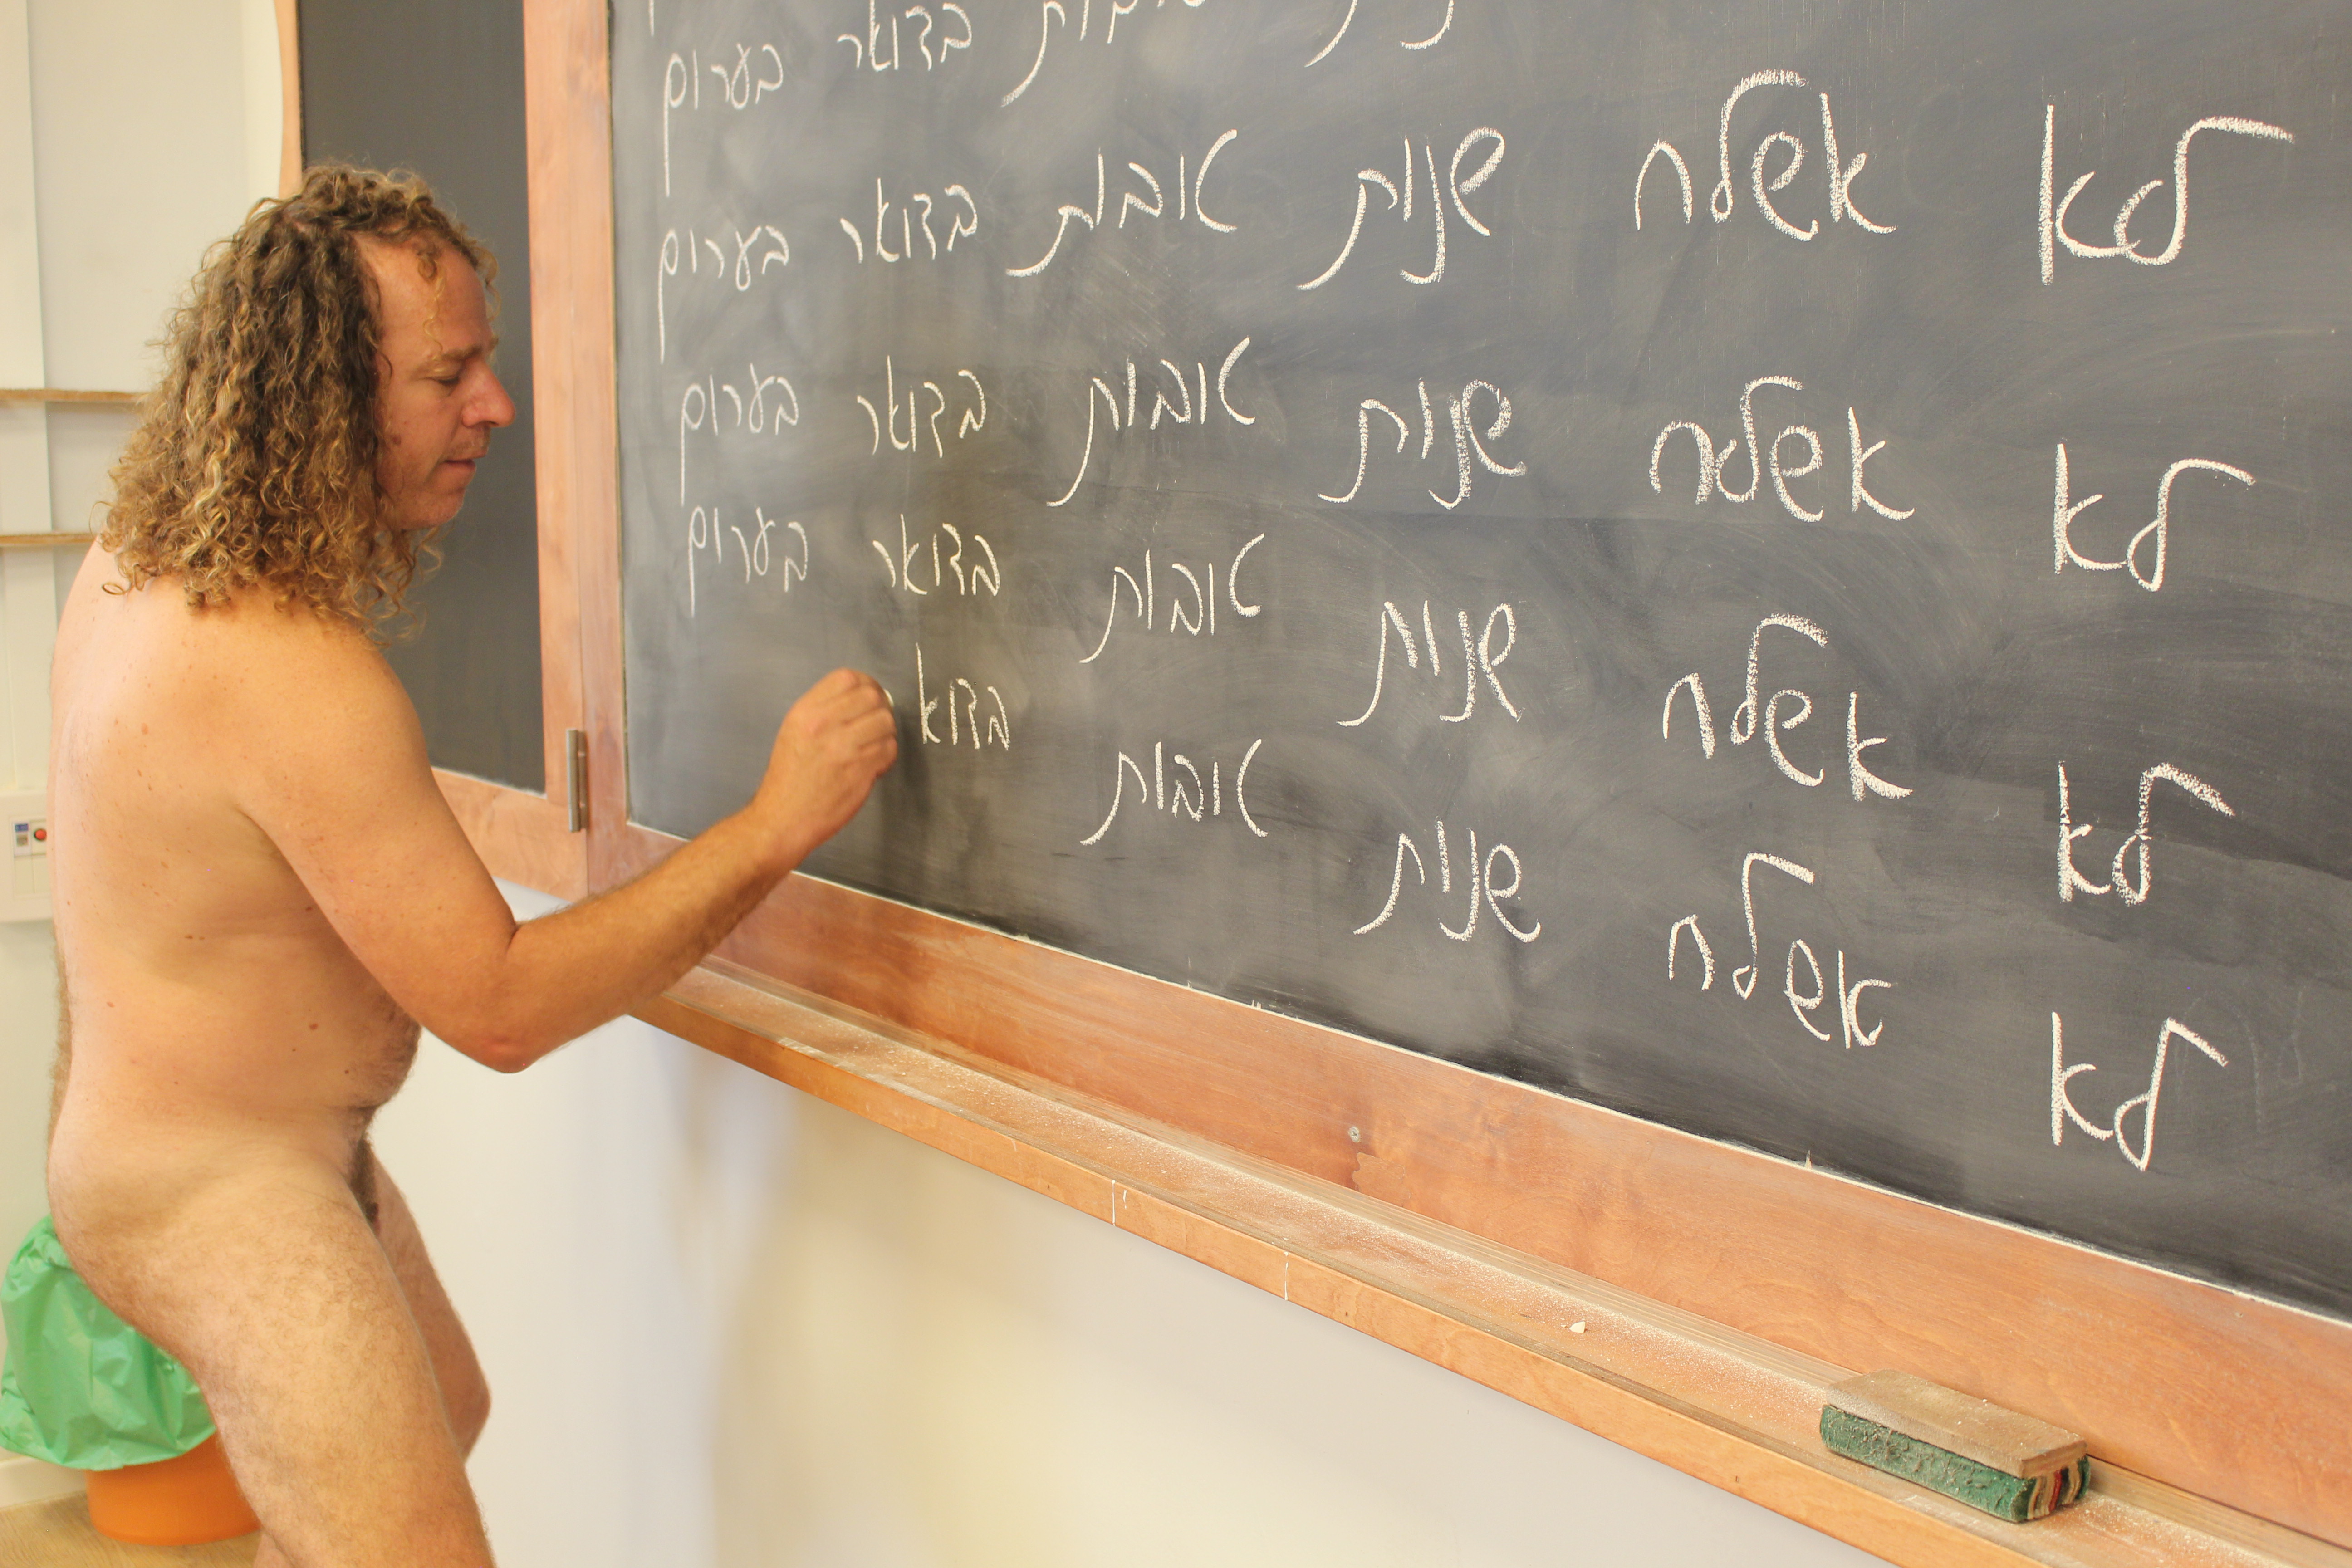 בדואר בערום
לא אשלח שנות טובות בדואר בערום
לא אשלח שנות טובות בדואר בערום
לא אשלח שנות טובות בדואר בערום
לא אשלח שנות טובות בדוא